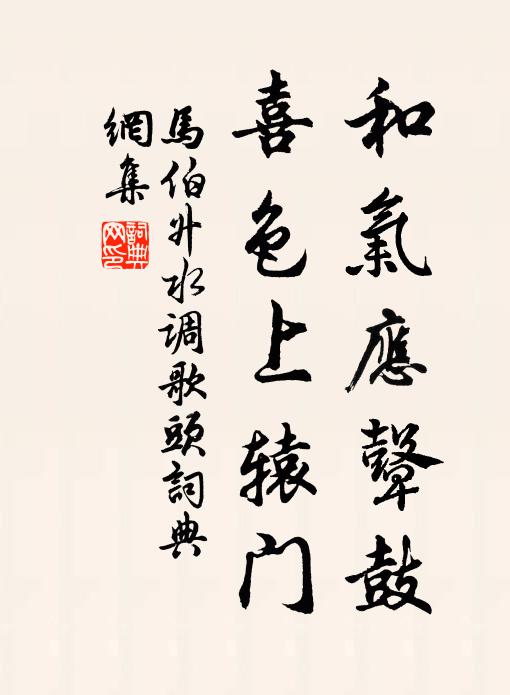 和氣應鼙鼓
喜色上辕门
馬伯升水调歌頭詞典
網集
詞典
网印